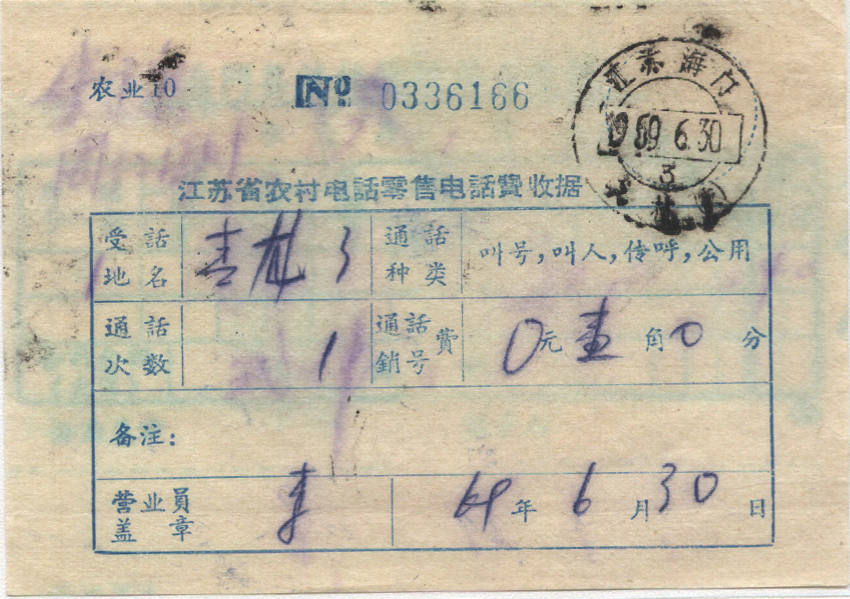 农业10
No 0336166
江苏海门
1969.6.30
3
江苏省农村电話零售电話費收据
受話地名
青龙
通話种类
叫号,叫人,传呼,公用
通話次数
1
通話銷号費
0元壹角0分
备注:
营业員盖章
69年6月30日